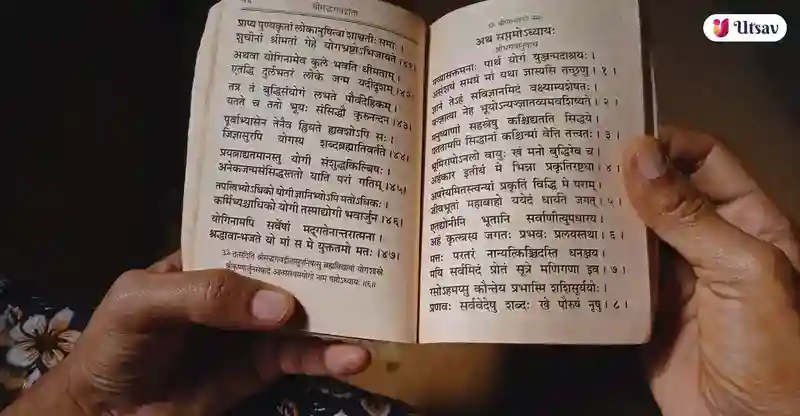 श्रीमद्भगवद्गीता
प्राप्य पुण्यकृतां लोकानुषित्वा शाश्वतीः समाः ।
शुचीनां श्रीमतां गेहे योगभ्रष्टोऽभिजायते ।४१।
अथवा योगिनामेव कुले भवति धीमताम् ।
एतद्धि दुर्लभतरं लोके जन्म यदीदृशम् ।४२।
तत्र तं बुद्धिसंयोगं लभते पौर्वदेहिकम् ।
यतते च ततो भूयः संसिद्धौ कुरुनन्दन ।४३।
पूर्वाभ्यासेन तेनैव ह्रियते ह्यवशोऽपि सः ।
जिज्ञासुरपि योगस्य शब्दब्रह्मातिवर्तते ।४४।
प्रयत्नाद्यतमानस्तु योगी संशुद्धकिल्बिषः ।
अनेकजन्मसंसिद्धस्ततो याति परां गतिम् ।४५।
तपस्विभ्योऽधिको योगी ज्ञानिभ्योऽपि मतोऽधिकः ।
कर्मिभ्यश्चाधिको योगी तस्माद्योगी भवार्जुन ।४६।
योगिनामपि सर्वेषां मद्गतेनान्तरात्मना ।
श्रद्धावान्भजते यो मां स मे युक्ततमो मतः ।४७।
ॐ तत्सदिति श्रीमद्भगवद्गीतासूपनिषत्सु ब्रह्मविद्यायां योगशास्त्रे
श्रीकृष्णार्जुनसंवादे आत्मसंयमयोगो नाम षष्ठोऽध्यायः ॥६॥
अथ सप्तमोऽध्यायः
श्रीभगवानुवाच
मय्यासक्तमनाः पार्थ योगं युञ्जन्मदाश्रयः ।
असंशयं समग्रं मां यथा ज्ञास्यसि तच्छृणु । १ ।
ज्ञानं तेऽहं सविज्ञानमिदं वक्ष्याम्यशेषतः ।
यज्ज्ञात्वा नेह भूयोऽन्यज्ज्ञातव्यमवशिष्यते । २ ।
मनुष्याणां सहस्रेषु कश्चिद्यतति सिद्धये ।
यततामपि सिद्धानां कश्चिन्मां वेत्ति तत्त्वतः । ३ ।
भूमिरापोऽनलो वायुः खं मनो बुद्धिरेव च ।
अहंकार इतीयं मे भिन्ना प्रकृतिरष्टधा । ४ ।
अपरेयमितस्त्वन्यां प्रकृतिं विद्धि मे पराम् ।
जीवभूतां महाबाहो ययेदं धार्यते जगत् । ५ ।
एतद्योनीनि भूतानि सर्वाणीत्युपधारय ।
अहं कृत्स्नस्य जगतः प्रभवः प्रलयस्तथा । ६ ।
मत्तः परतरं नान्यत्किञ्चिदस्ति धनञ्जय ।
मयि सर्वमिदं प्रोतं सूत्रे मणिगणा इव । ७ ।
रसोऽहमप्सु कौन्तेय प्रभास्मि शशिसूर्ययोः ।
प्रणवः सर्ववेदेषु शब्दः खे पौरुषं नृषु । ८ ।
Utsav